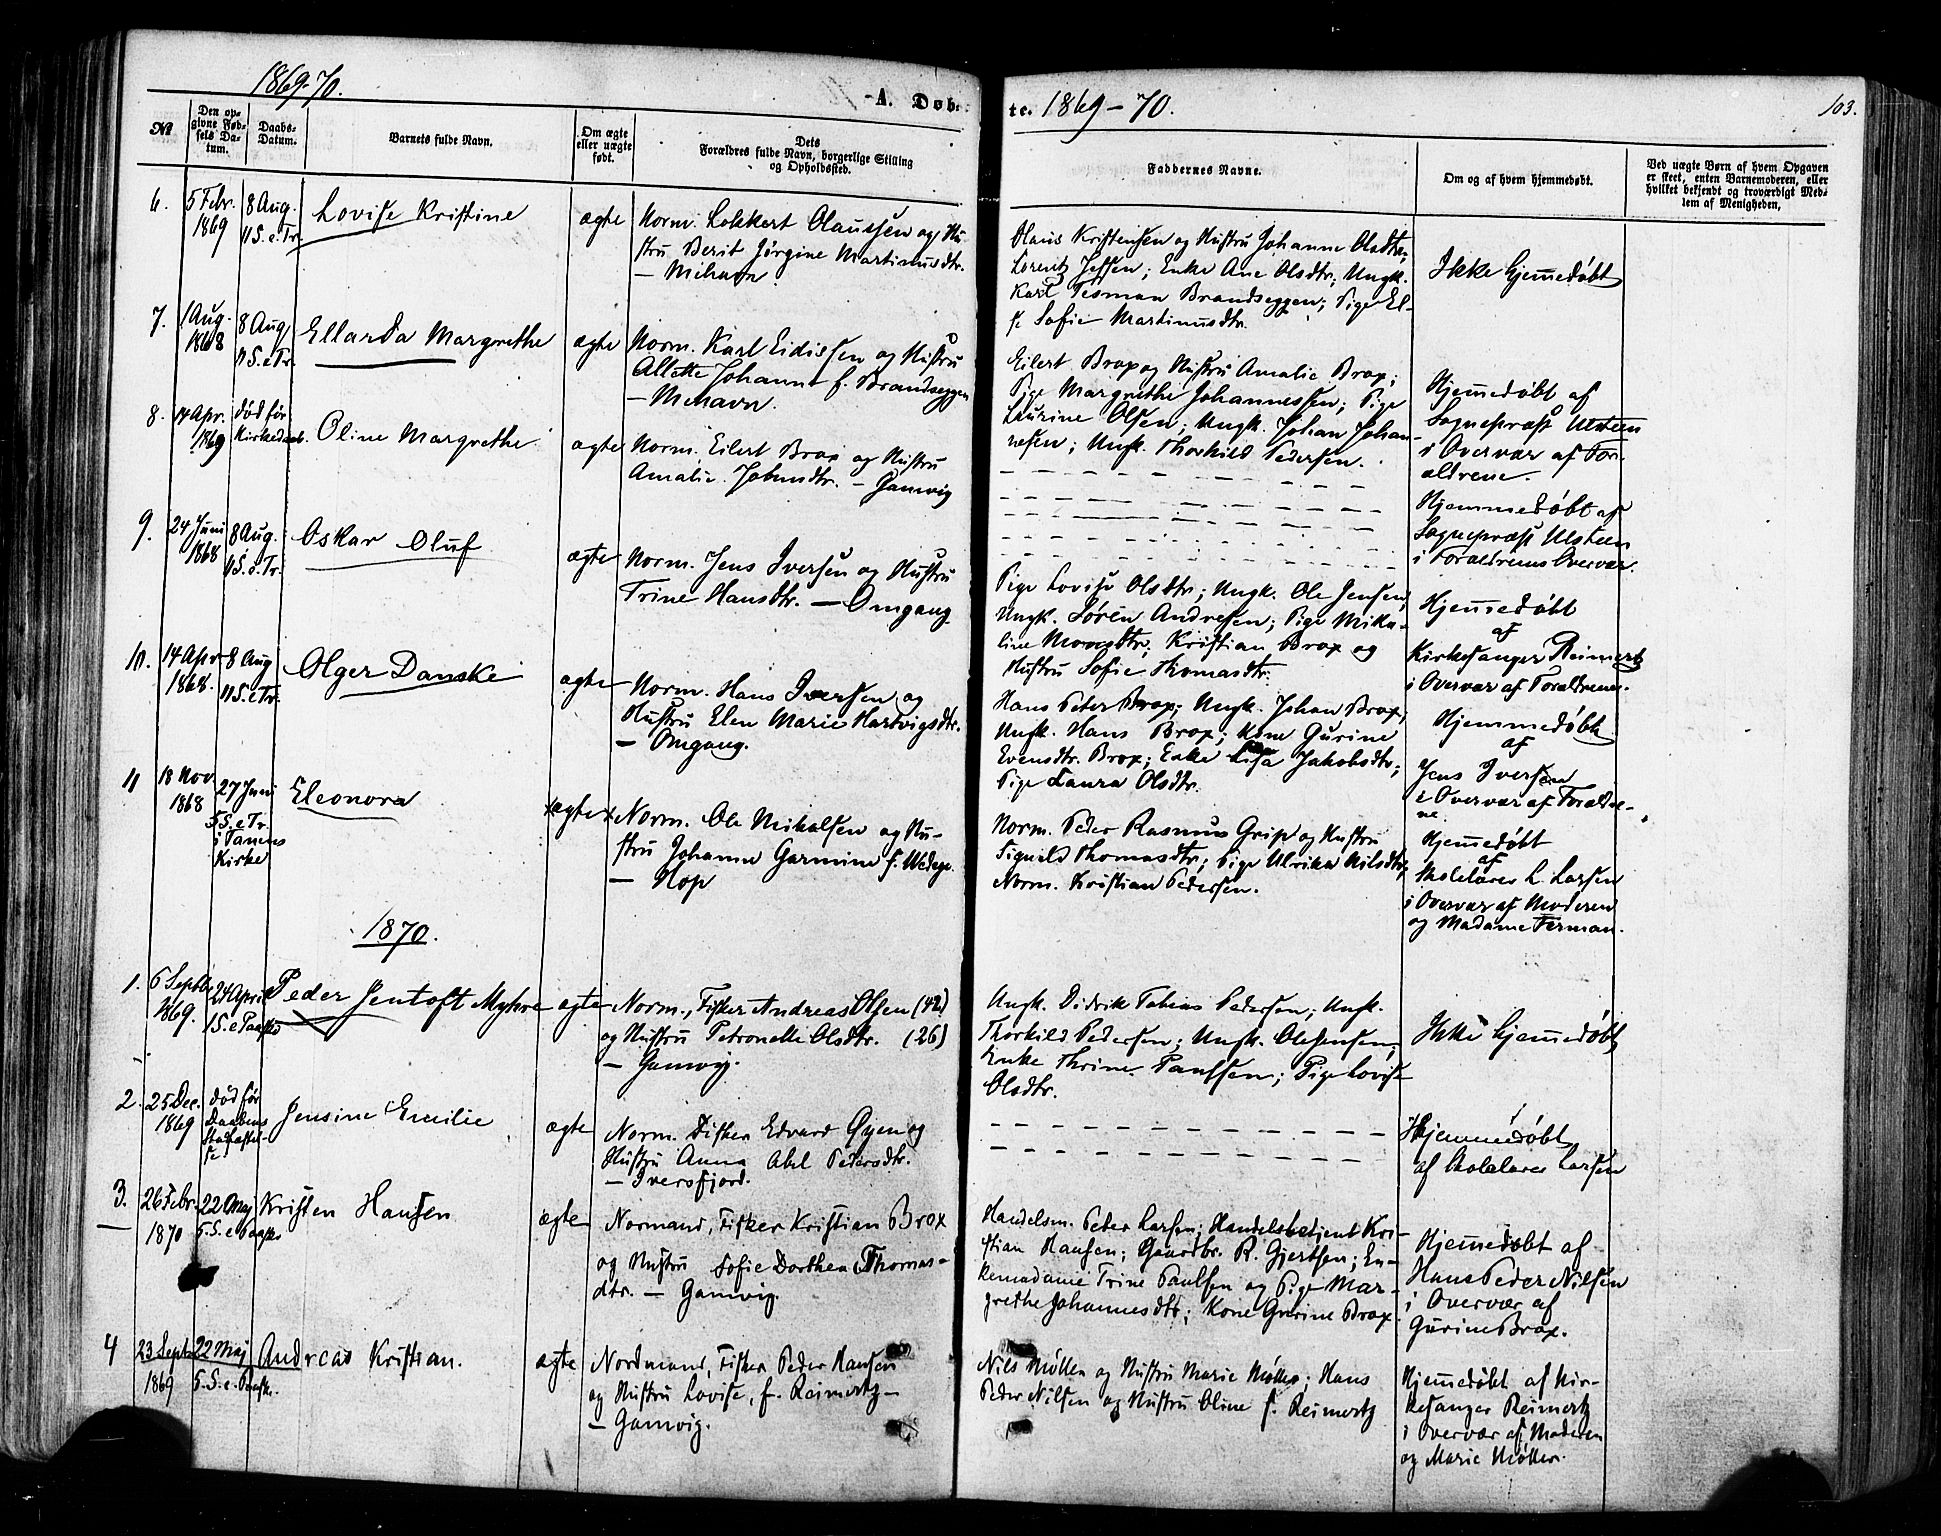 1869-70.
A. Døb-
te. 1869-70.
103.
№
Den op-
givne Fød-
sels Da-
tum.
Daabs-
Datum.
Barnets fulde Navn.
Om ægte
eller uægte
født.
Dets
Forældres fulde Navn, borgerlige Stilling
og Opholdssted.
Faddernes Navne.
Om og af hvem hjemmedøbt.
Ved uægte Børn af hvem Opgaven
er skeet, enten Barnemoderen, eller
hvilket bekjendt og troværdigt Med-
lem af Menigheden,
6.
5 Febr.
1869
8 Aug.
11 S. e. Tr.
Lovise Kristine
ægte
Norm. Lokkert Olaussen og Hu-
stru Berit Jørgine Martinusdtr.
— Mehavn.
Hans Kristensen og Hustru Johanne Olsdtr;
Lorentz Jessen; Enke Ane Olsdtr; Ungk.
Karl Tesman Brandseggen; Pige El-
se Sofie Martinusdtr.
Ikke hjemmedøbt
7.
1 Aug.
1868
8 Aug
11 S. e Tr.
Ellarda Margrethe
ægte
Norm. Karl Eidissen og Hustru
Allette Johanne f. Brandseggen
— Mehavn.
Eilert Brox og Hustru Amalie Brox;
Pige Margrethe Johannessen; Pige
Laurine Olsen; Ungk. Johan Johan-
nesen; Ungk. Thorkild Pedersen.
Hjemmedøbt af
Sognepræst Ulsteen
i Overvær af For-
ældrene.
8.
14 Apr.
1869
død før
Kirkedaab.
Oline Margrethe.
ægte
Norm. Eilert Brox og Hustru
Amalie Jobundtr. — Gamvig
Hjemmedøbt af
Sognepræst Ulsteen
i Forældrenes Overvær.
9.
24 Juni
1868
8 Aug.
11 S. e. Tr.
Oskar Oluf
ægte
Norm. Jens Iversen og Hustru
Trine Hansdtr. — Omgang
Pige Lovise Olsdtr; Ungk. Ole Jensen;
Ungk. Søren Andresen; Pige Mika-
line Monsdtr; Kristian Brox og
Hustru Sofie Thomasdtr.
Hjemmedøbt
af
Kirkesanger Reimertz
i Overvær af Forældrene.
10.
14 Apr.
1868.
8 Aug
11 S. e Tr.
Olger Danske
ægte
Norm. Hans Iversen og
Hustru Elen Marie Hartvigsdtr.
— Omgang.
Hans Peter Brox; Ungk. Johan Brox;
Ungk. Hans Brox; Kone Gurine
Evensdtr. Brox; Enke Lisa Jakobsdtr;
Pige Laura Olsdtr.
Hjemmedøbt
af
Jens Iversen
i Overvær af Forældre-
ne.
11
18 Nov.
1868
27 Juni
5 S. e Tr.
i Tanens
Kirke
Eleonora
ægte
Norm. Ole Mikalsen og Hu-
stru Johanne Garmine f. Wedege.
— Hop
Norm. Peder Rasmus Grip og Hustru
Signild Thomasdtr; Pige Ulrika Nilsdtr;
Norm. Kristian Pedersen.
Hjemmedøbt
af
Skolelærer L. Larsen
i Overvær af Moderen
og Madame Ferman.
1870.
1.
6 Septbr
1869.
24 April
1 S. e Paaske
Peder Jentoft Myhre
ægte
Norm., Fisker Andreas Olsen (42)
og Hustru Petronelle Olsdtr. (26)
— Gamvig.
Ungk. Didrik Tobias Pedersen; Ungk.
Thorkild Pedersen; Ungk. Ole Jensen;
Enke Thrine Paulsen; Pige Lovise
Olsdtr.
Ikke hjemmedøbt
2.
25 Dec.
1869
død før
Daabens
Stadfæstel-
se
Jensine Emilie
ægte
Norm. Fisker Edvard Øyen og
Hustru Anna Abel Pedersdtr.
— Iversfjord.
Hjemmedøbt
af Skolelærer Larsen
3.
26 Febr.
1870
22 Maj
5. S. e. Paaske
Kristen Hansen
ægte
Normand, Fisker Kristian Brox
og Hustru Sofie Dorthea Thomas-
dtr. — Gamvig.
Handelsm. Peter Larsen; Handelsbetjent Kri-
stian Hansen; Gaardbr. R. Gjertsen; En-
kemadame Trine Paulsen og Pige Mar-
grethe Johannesdtr; Kone Gurine Brox
Hjemmedøbt af
Hans Peder Nilsen
i Overvær af
Gurine Brox.
4
23 Sept.
1869
22 Maj
5. S. e. Paaske.
Andreas Kristian.
ægte
Nordmand, Fisker Peder Hansen
og Hustru Lovise, f. Reimertz —
— Gamvig.
Nils Møller og Hustru Marie Møller; Hans
Peder Nilsen og Hustru Oline f. Reimertz
Hjemmedøbt af Kir-
kesanger Reimertz
i Overvær af Moderen
og Marie Møller.